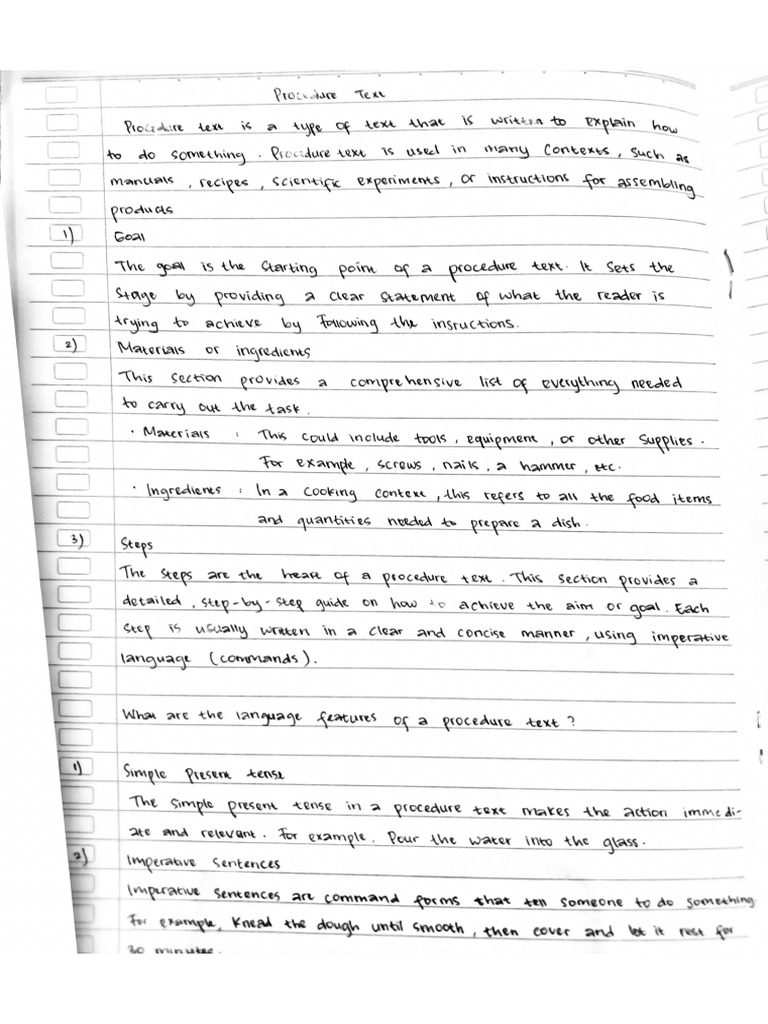 Procedure Text
Procedure text is a type of text that is written to explain how
to do something. Procedure text is used in many contexts, such as
manuals, recipes, scientific experiments, or instructions for assembling
products
1) Goal
The goal is the starting point of a procedure text. It sets the
stage by providing a clear statement of what the reader is
trying to achieve by following the insructions.
2) Materials or ingredients
This section provides a comprehensive list of everything needed
to carry out the task.
• Materials : This could include tools, equipment, or other supplies.
For example, screws, nails, a hammer, etc.
• Ingredients : In a cooking context, this refers to all the food items
and quantities needed to prepare a dish.
3) Steps
The steps are the heart of a procedure text. This section provides a
detailed, step-by-step guide on how to achieve the aim or goal. Each
step is usually written in a clear and concise manner, using imperative
language (commands).
What are the language features of a procedure text?
1) Simple Present tense
The simple present tense in a procedure text makes the action immedi-
ate and relevant. For example. Pour the water into the glass.
2) Imperative sentences
Imperative sentences are command forms that tell someone to do something
For example, Knead the dough until smooth, then cover and let it rest for
30 minutes.